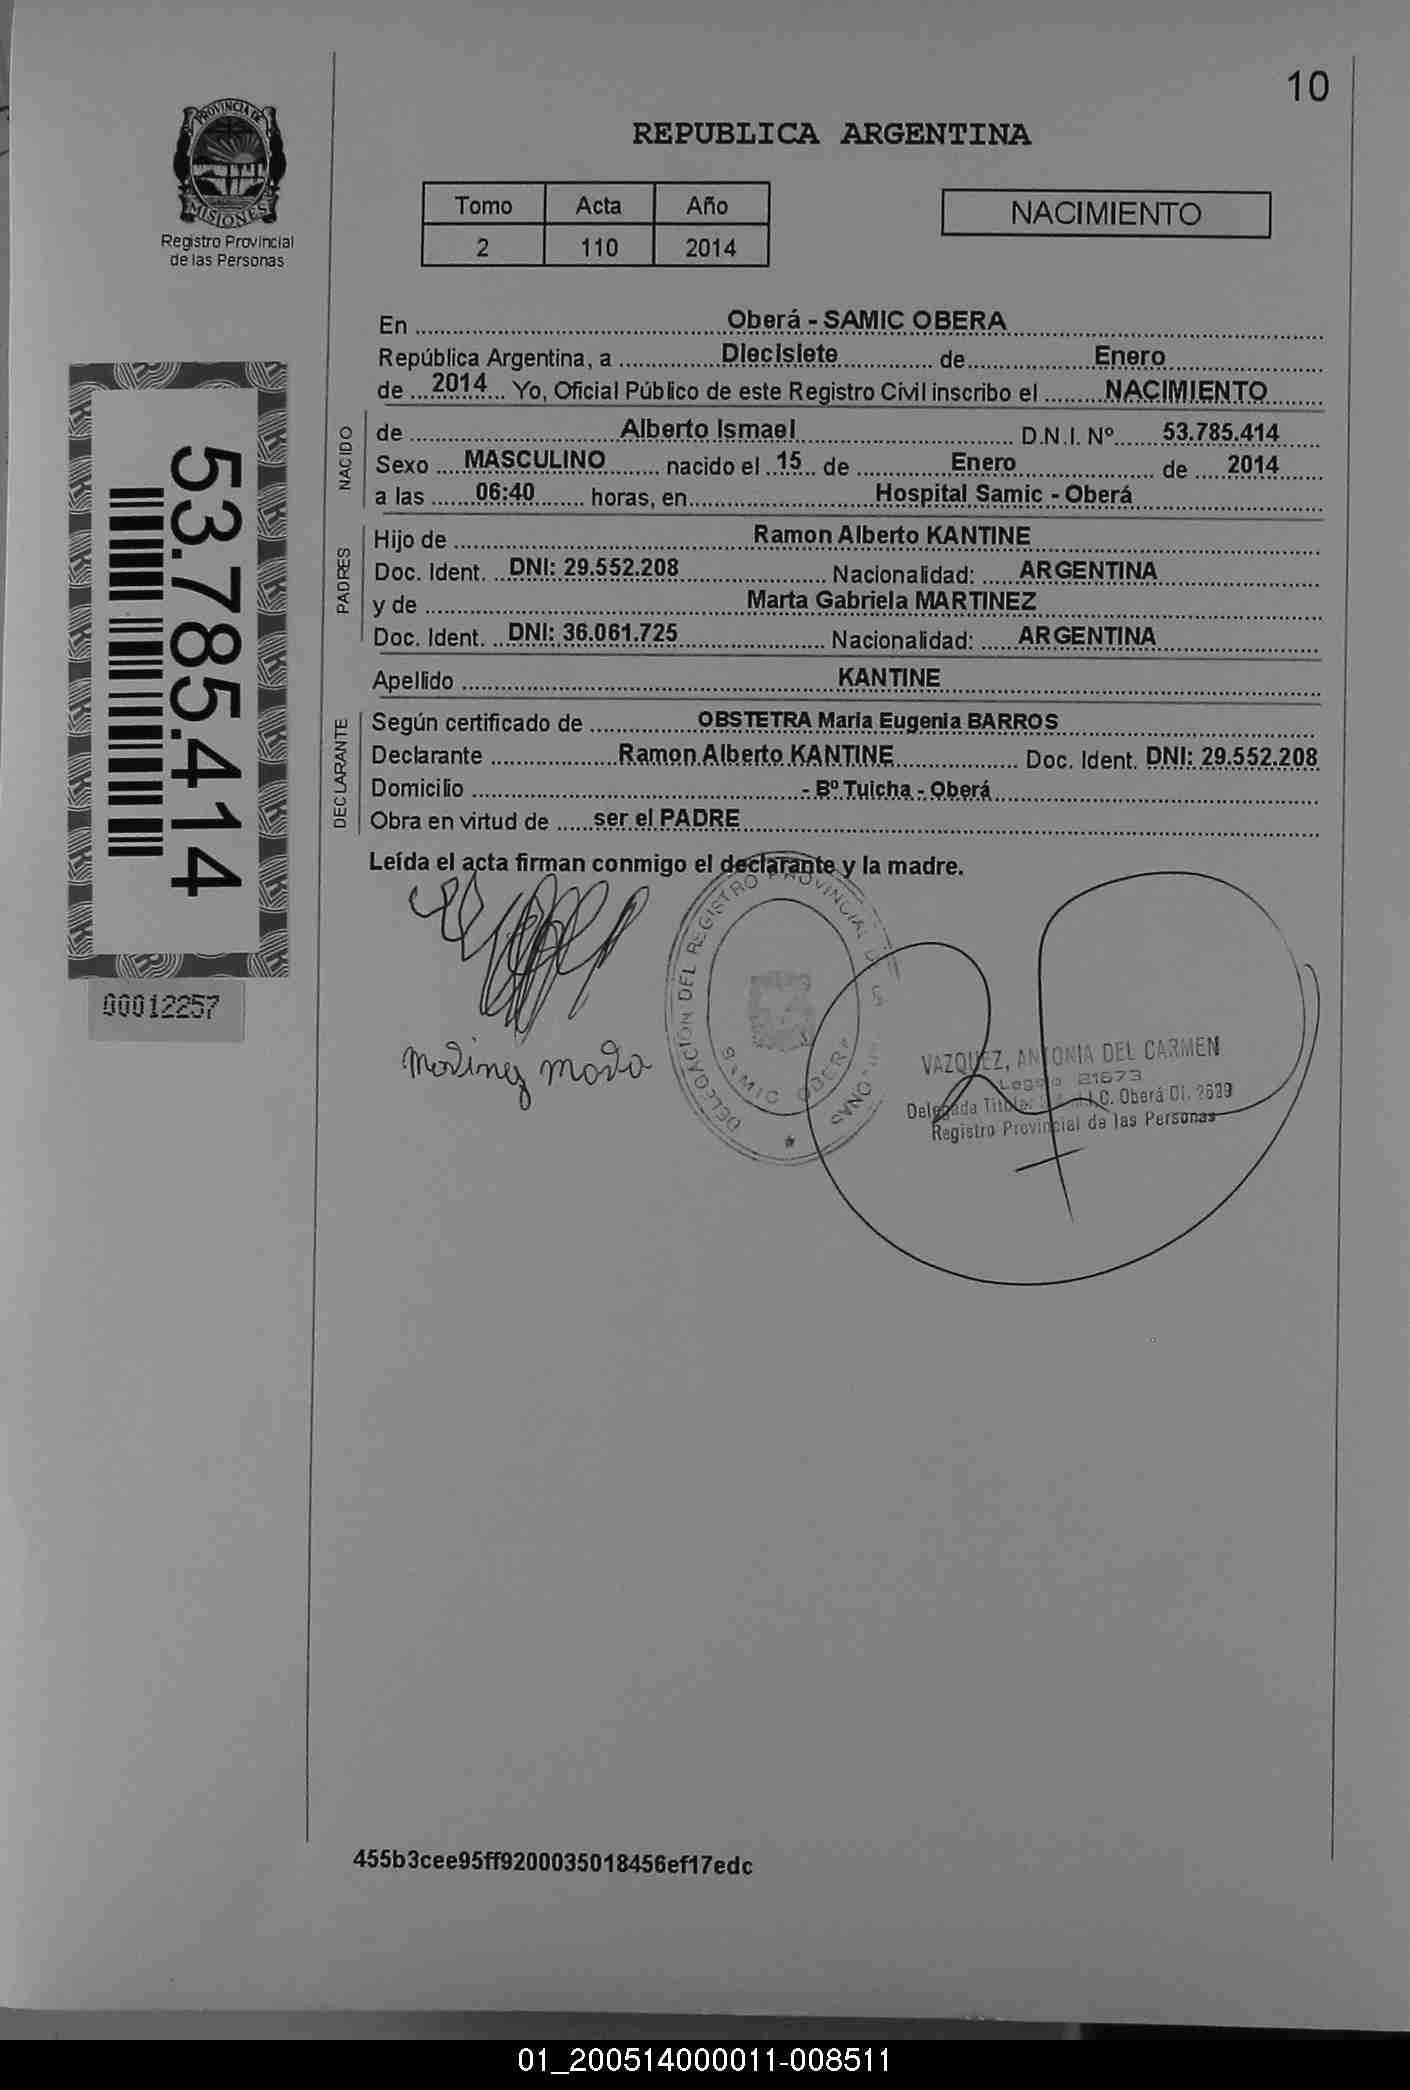 10
PROVINCIA DE
MISIONES
Registro Provincial
de las Personas
REPUBLICA ARGENTINA
Tomo Acta Año
2 110 2014
NACIMIENTO
53.785.414
00012257
En Oberá - SAMIC OBERA
República Argentina, a Diecisiete de Enero
de 2014 Yo, Oficial Público de este Registro Civil inscribo el NACIMIENTO
NACIDO
de Alberto Ismael D.N.I. Nº 53.785.414
Sexo MASCULINO nacido el 15 de Enero de 2014
a las 06:40 horas, en Hospital Samic - Oberá
PADRES
Hijo de Ramon Alberto KANTINE
Doc. Ident. DNI: 29.552.208 Nacionalidad: ARGENTINA
y de Marta Gabriela MARTINEZ
Doc. Ident. DNI: 36.061.725 Nacionalidad: ARGENTINA
Apellido KANTINE
DECLARANTE
Según certificado de OBSTETRA Maria Eugenia BARROS
Declarante Ramon Alberto KANTINE Doc. Ident. DNI: 29.552.208
Domicilio - Bº Tuicha - Oberá
Obra en virtud de ser el PADRE
Leída el acta firman conmigo el declarante y la madre.
DELEGACIÓN DEL REGISTRO PROVINCIAL DE
SAMIC OBERA
VAZQUEZ, ANTONIA DEL CARMEN
Legajo 21673
Delegada Titular S.A.M.I.C. Oberá
Registro Provincial de las Personas
455b3cee95ff9200035018456ef17edc
01_200514000011-008511